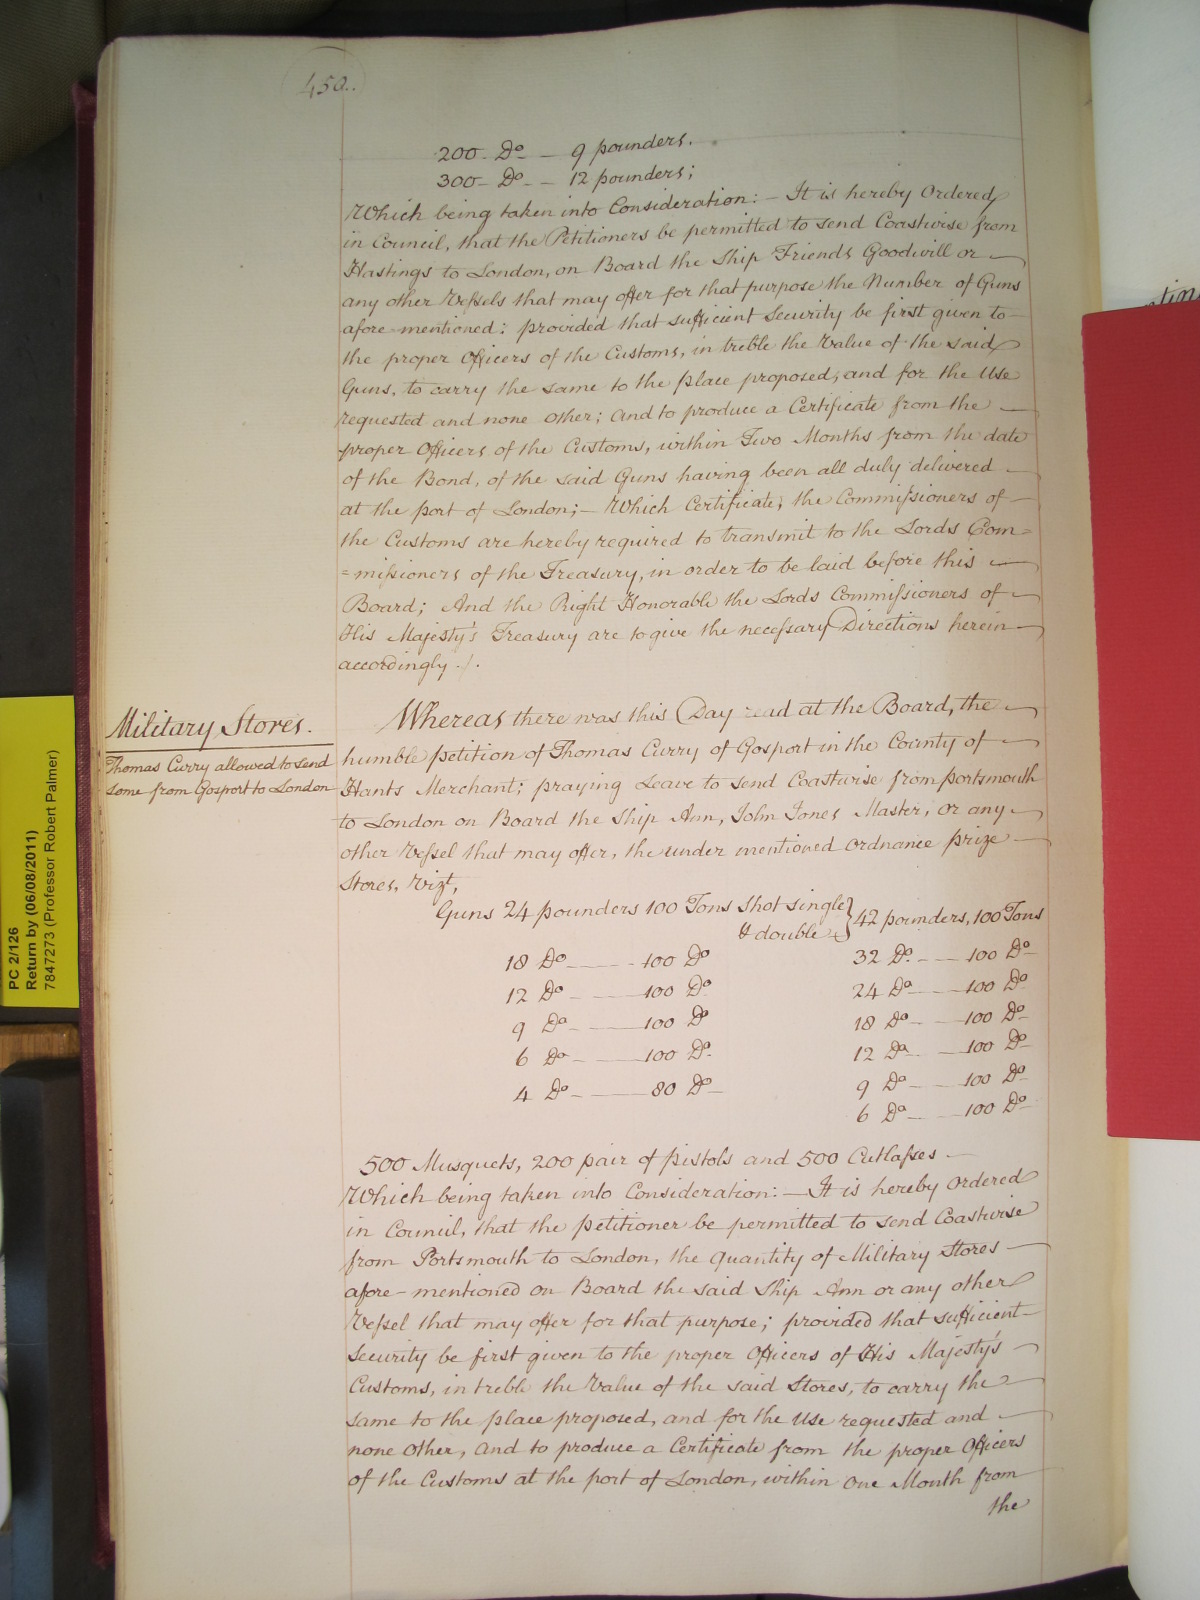 450.
200 Do. — 9 pounders.
300 Do. — 12 pounders;
Which being taken into Consideration: — It is hereby Ordered
in Council, that the Petitioners be permitted to send Coastwise from
Hastings to London, on Board the Ship Friends Goodwill or —
any other Vessels that may offer for that purpose the Number of Guns
afore-mentioned: provided that sufficient Security be first given to —
the proper Officers of the Customs, in treble the Value of the said
Guns, to carry the same to the place proposed, and for the Use
requested and none other; and to produce a Certificate from the —
proper Officers of the Customs, within Two Months from the date
of the Bond, of the said Guns having been all duly delivered —
at the port of London; — Which Certificate, the Commissioners of —
the Customs are hereby required to transmit to the Lords Com=
=missioners of the Treasury, in order to be laid before this —
Board; And the Right Honorable the Lords Commissioners of —
His Majesty's Treasury are to give the necessary Directions herein —
accordingly ./.
Military Stores.
Thomas Curry allowed to send
some from Gosport to London
Whereas there was this Day read at the Board, the —
humble petition of Thomas Curry of Gosport in the County of —
Hants Merchant; praying Leave to send Coastwise from portsmouth
to London on Board the Ship Ann, John Jones Master, or any —
other Vessel that may offer, the under mentioned Ordnance prize —
Stores, Vizt,
Guns 24 pounders 100 Tons Shot single & double } 42 pounders, 100 Tons
18 Do — 100 Do 32 Do. — 100 Do
12 Do — 100 Do 24 Do — 100 Do
9 Do — 100 Do 18 Do — 100 Do
6 Do — 100 Do. 12 Do. — 100 Do
4 Do — 80 Do — 9 Do — 100 Do
6 Do — 100 Do
500 Musquets, 200 pair of pistols and 500 Cutlasses —
Which being taken into Consideration: — It is hereby Ordered
in Council, that the petitioner be permitted to send Coastwise
from Portsmouth to London, the quantity of Military Stores —
afore-mentioned on Board the said Ship Ann or any other
Vessel that may offer for that purpose; provided that sufficient
Security be first given to the proper Officers of His Majesty's —
Customs, in treble the Value of the said Stores, to carry the —
same to the place proposed, and for the Use requested and —
none other, and to produce a Certificate from the proper Officers
of the Customs at the port of London, within one Month from
the
PC 2/126
Return by (06/08/2011)
7847273 (Professor Robert Palmer)